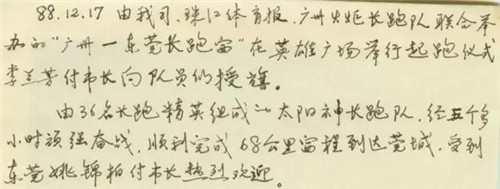 88.12.17 由我司、珠江体育报、广州火炬长跑队联合举
办的“广州—东莞长跑赛”在英雄广场举行起跑仪式
李兰芳付市长向队员们授旗。
由36名长跑精英组成的太阳神长跑队、经五个多
小时顽强奋战、顺利完成68公里赛程到达莞城、受到
东莞姚锦柏付市长热烈欢迎。